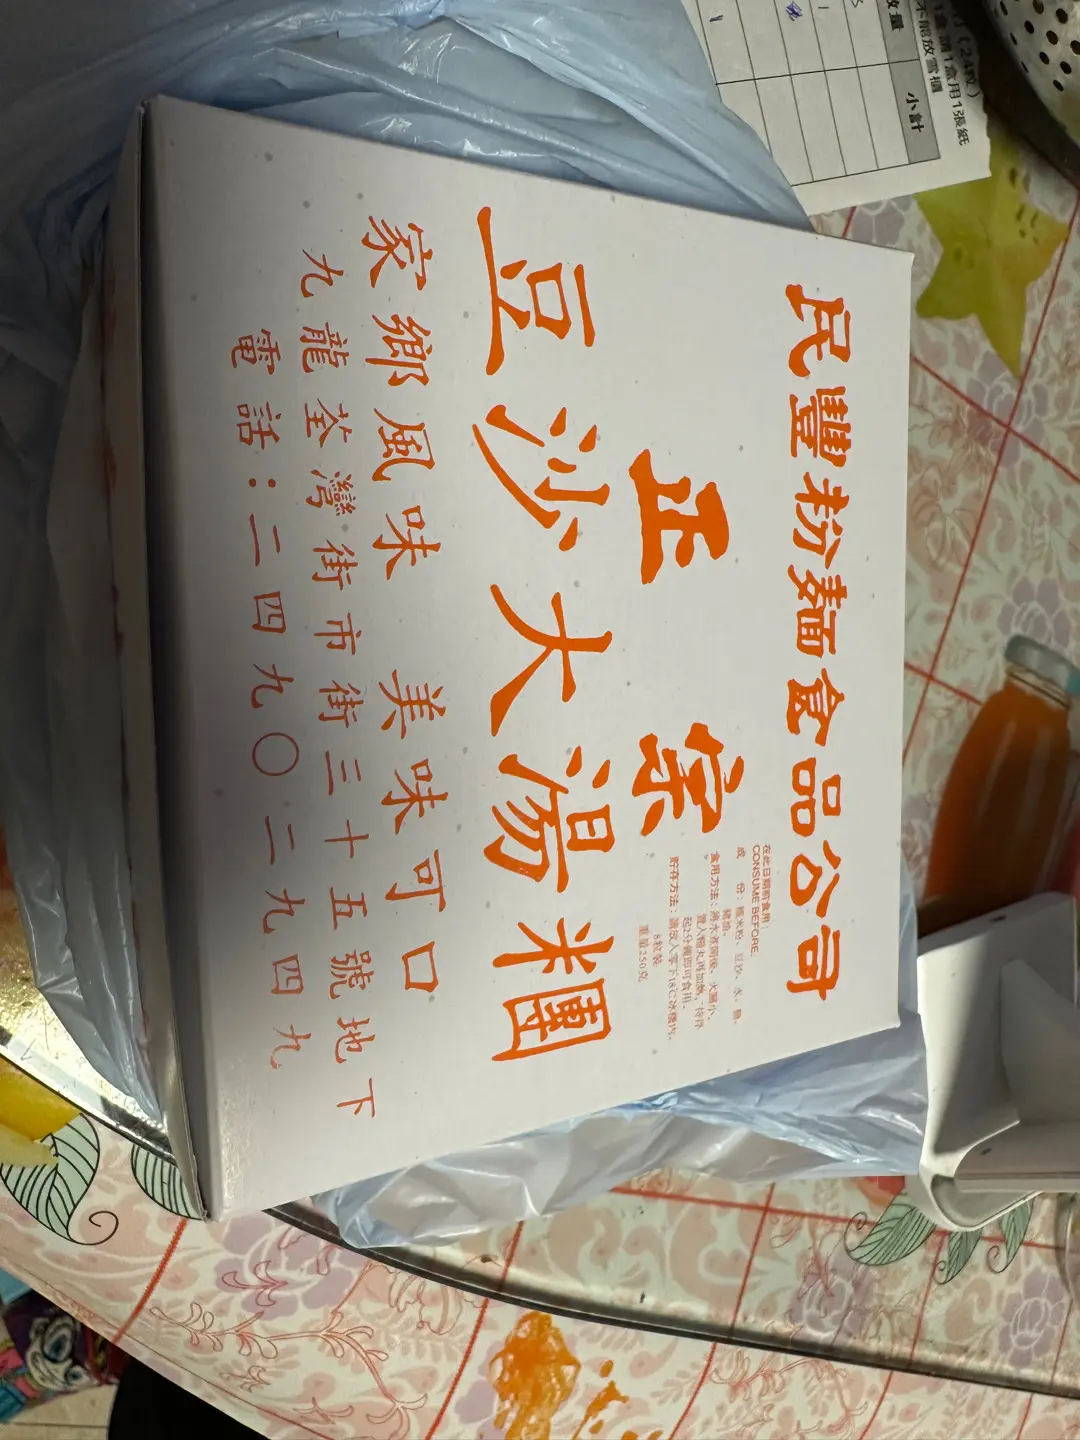 民豐粉麵食品公司
正宗
豆沙大湯糰
家鄉風味 美味可口
九龍荃灣街市街三十五號地下
電話:二四九〇二九四九
在此日期前食用:
CONSUME BEFORE.
成 份:糯米粉、豆沙、水、糖、
豬油。
食用方法:將水煮開後,火關小,
置入糰丸再加熱,待浮
起2分鐘即可食用。
貯存方法:請放入零下18℃冰櫃內。
8粒裝
重量250克
(24粒)
1盒請1盒用1張紙
不能放雪櫃
數量
小計